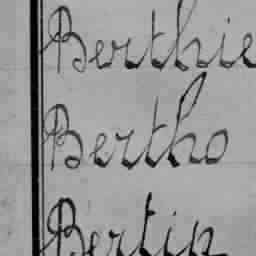 Berthie
Bertho
Bertin